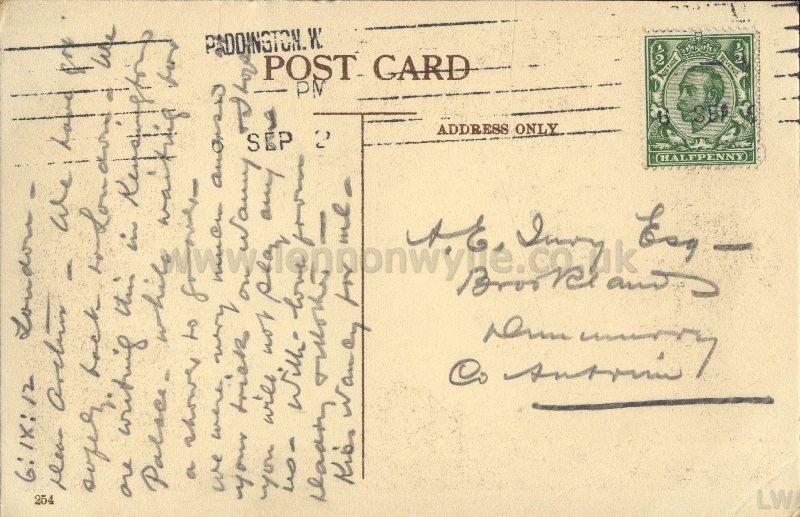 PADDINGTON. W.
PM
SEP
POST CARD
ADDRESS ONLY
1/2 1/2
HALFPENNY
SEP
A. E. Ivory Esq —
Brooklands
Dunmurry
Co Antrim
6: IX: 12 London —
Dear Arthur — We have got
safely back to London — We
are writing this in Kensington
Palace — while waiting for
a shower to go over —
We were very much amused at
your trick on Nanny & hope
you will not play any
on us — With love from
Daddy & Mother —
Kiss Nancy for me —
254
www.lennonwylie.co.uk
LW